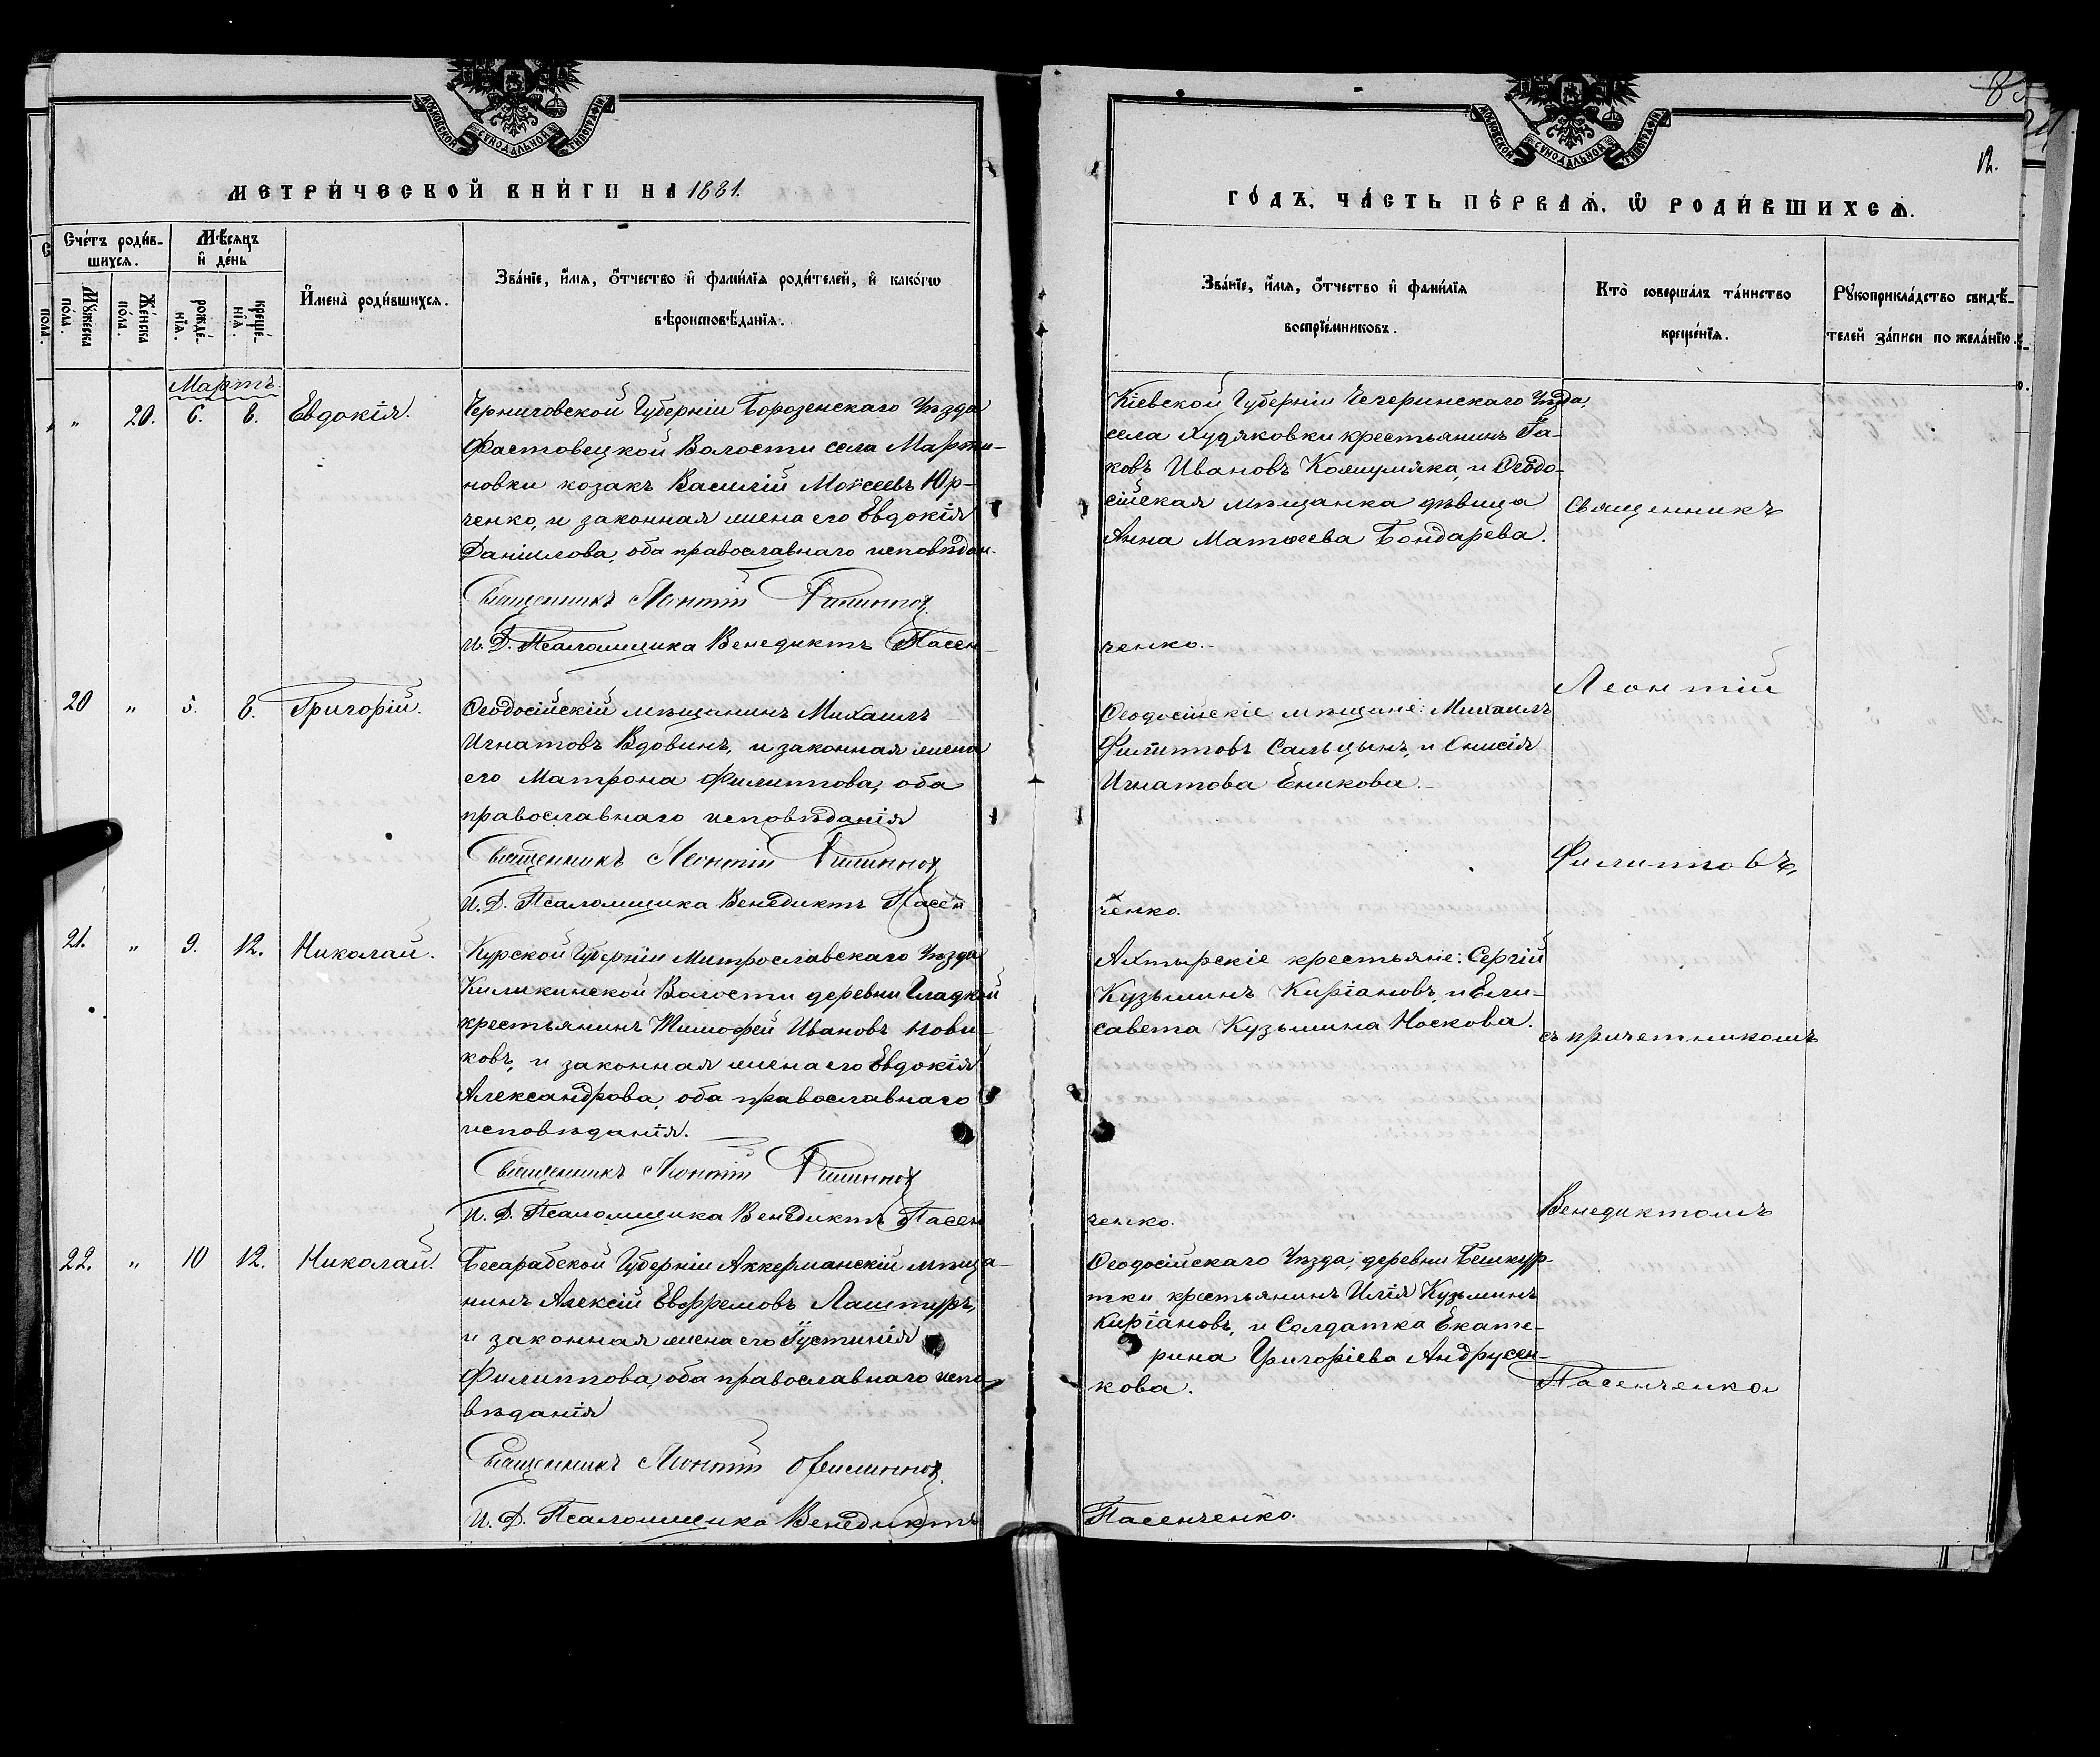 МОСКОВСКОЙ СѴНОДАЛЬНОЙ ТИПОГРАФІИ
МЕТРИ́ЧЕСКОЙ КНИ́ГИ НА 1881.
Сче́тъ роди́в-
шихся.
Мѣ́сяцъ
и҆ де́нь
Мꙋ́жеска по́ла.
Же́нска по́ла.
рожде́-нїѧ.
креще́-нїѧ.
И҆мена̀ роди́вшихся.
Зва́нїе, и҆́мѧ, ѻ҆́тчество и҆ фами́лїѧ роди́телей, и҆ како́гѡ
вѣроисповѣ́данїѧ.
Мартъ.
" 20. 6. 8. Евдокія.
Черниговской Губерніи Борозенскаго Уѣзда
Фастовецкой Волости села Марти-
новки козакъ Василій Моѵсеевъ Юр-
ченко, и законная жена его Евдокія
Даніилова, оба православнаго исповѣдан.
Священникъ Леонтій Филипповъ
И. Д. Псаломщика Венедиктъ Пасен-
20 " 5. 8. Григорій.
Ѳеодосійскій мѣщанинъ Михаилъ
Игнатовъ Вдовинъ, и законная жена
его Матрона Филиппова, оба
православнаго исповѣданія
Священникъ Леонтій Филипповъ
И. Д. Псаломщика Венедиктъ Пасен
21. " 9. 12. Николай.
Курской Губерніи Митрославскаго Уѣзда
Киликинской Волости деревни Гладкой
крестьянинъ Тимофей Ивановъ Нови-
ковъ, и законная жена его Евдокія
Александрова, оба православнаго
исповѣданія.
Священникъ Леонтій Филипповъ
И. Д. Псаломщика Венедиктъ Пасен
22. " 10 12. Николай.
Бесарабской Губерніи Аккерманскій мѣща-
нинъ Алексій Евфремовъ Лаштуръ,
и законная жена его Іустинія
Филиппова, оба православнаго испо-
вѣданія
Священникъ Леонтій Филипповъ
И. Д. Псаломщика Венедиктъ
МОСКОВСКОЙ СѴНОДАЛЬНОЙ ТИПОГРАФІИ
12.
ГО́ДЪ, ЧА́СТЬ ПЕ́РВАѦ, Ѽ РОДИ́ВШИХСѦ.
Зва́нїе, и҆́мѧ, ѻ҆́тчество и҆ фами́лїѧ
воспрїе́мниковъ.
Кто̀ соверша́лъ та́инство
креще́нїѧ.
Рꙋкоприкла́дство свидѣ́-
телей за́писи по жела́нїю.
Кіевской Губерніи Чегеринскаго Уѣзда,
села Худяковки крестьянинъ Іа-
ковъ Ивановъ Кошумяка, и Ѳеодо-
сійская мѣщанка дѣвица
Анна Матѳеева Бондарева.
ченко.
Ѳеодосійскіе мѣщане: Михаилъ
Филипповъ Сальцынъ, и Онисія
Игнатова Еникова.
ченко.
Ахтырскіе крестьяне: Сергій
Кузьминъ Киріановъ, и Ели-
савета Кузьмина Носкова.
ченко.
Ѳеодосійскаго Уѣзда, деревни Бешкур-
тки крестьянинъ Илія Кузьминъ
Киріановъ, и Солдатка Екате-
рина Григоріева Андрусен-
кова.
Пасенченко.
Священникъ
Леонтій
Филипповъ,
съ причетникомъ
Венедиктомъ
Пасенченко